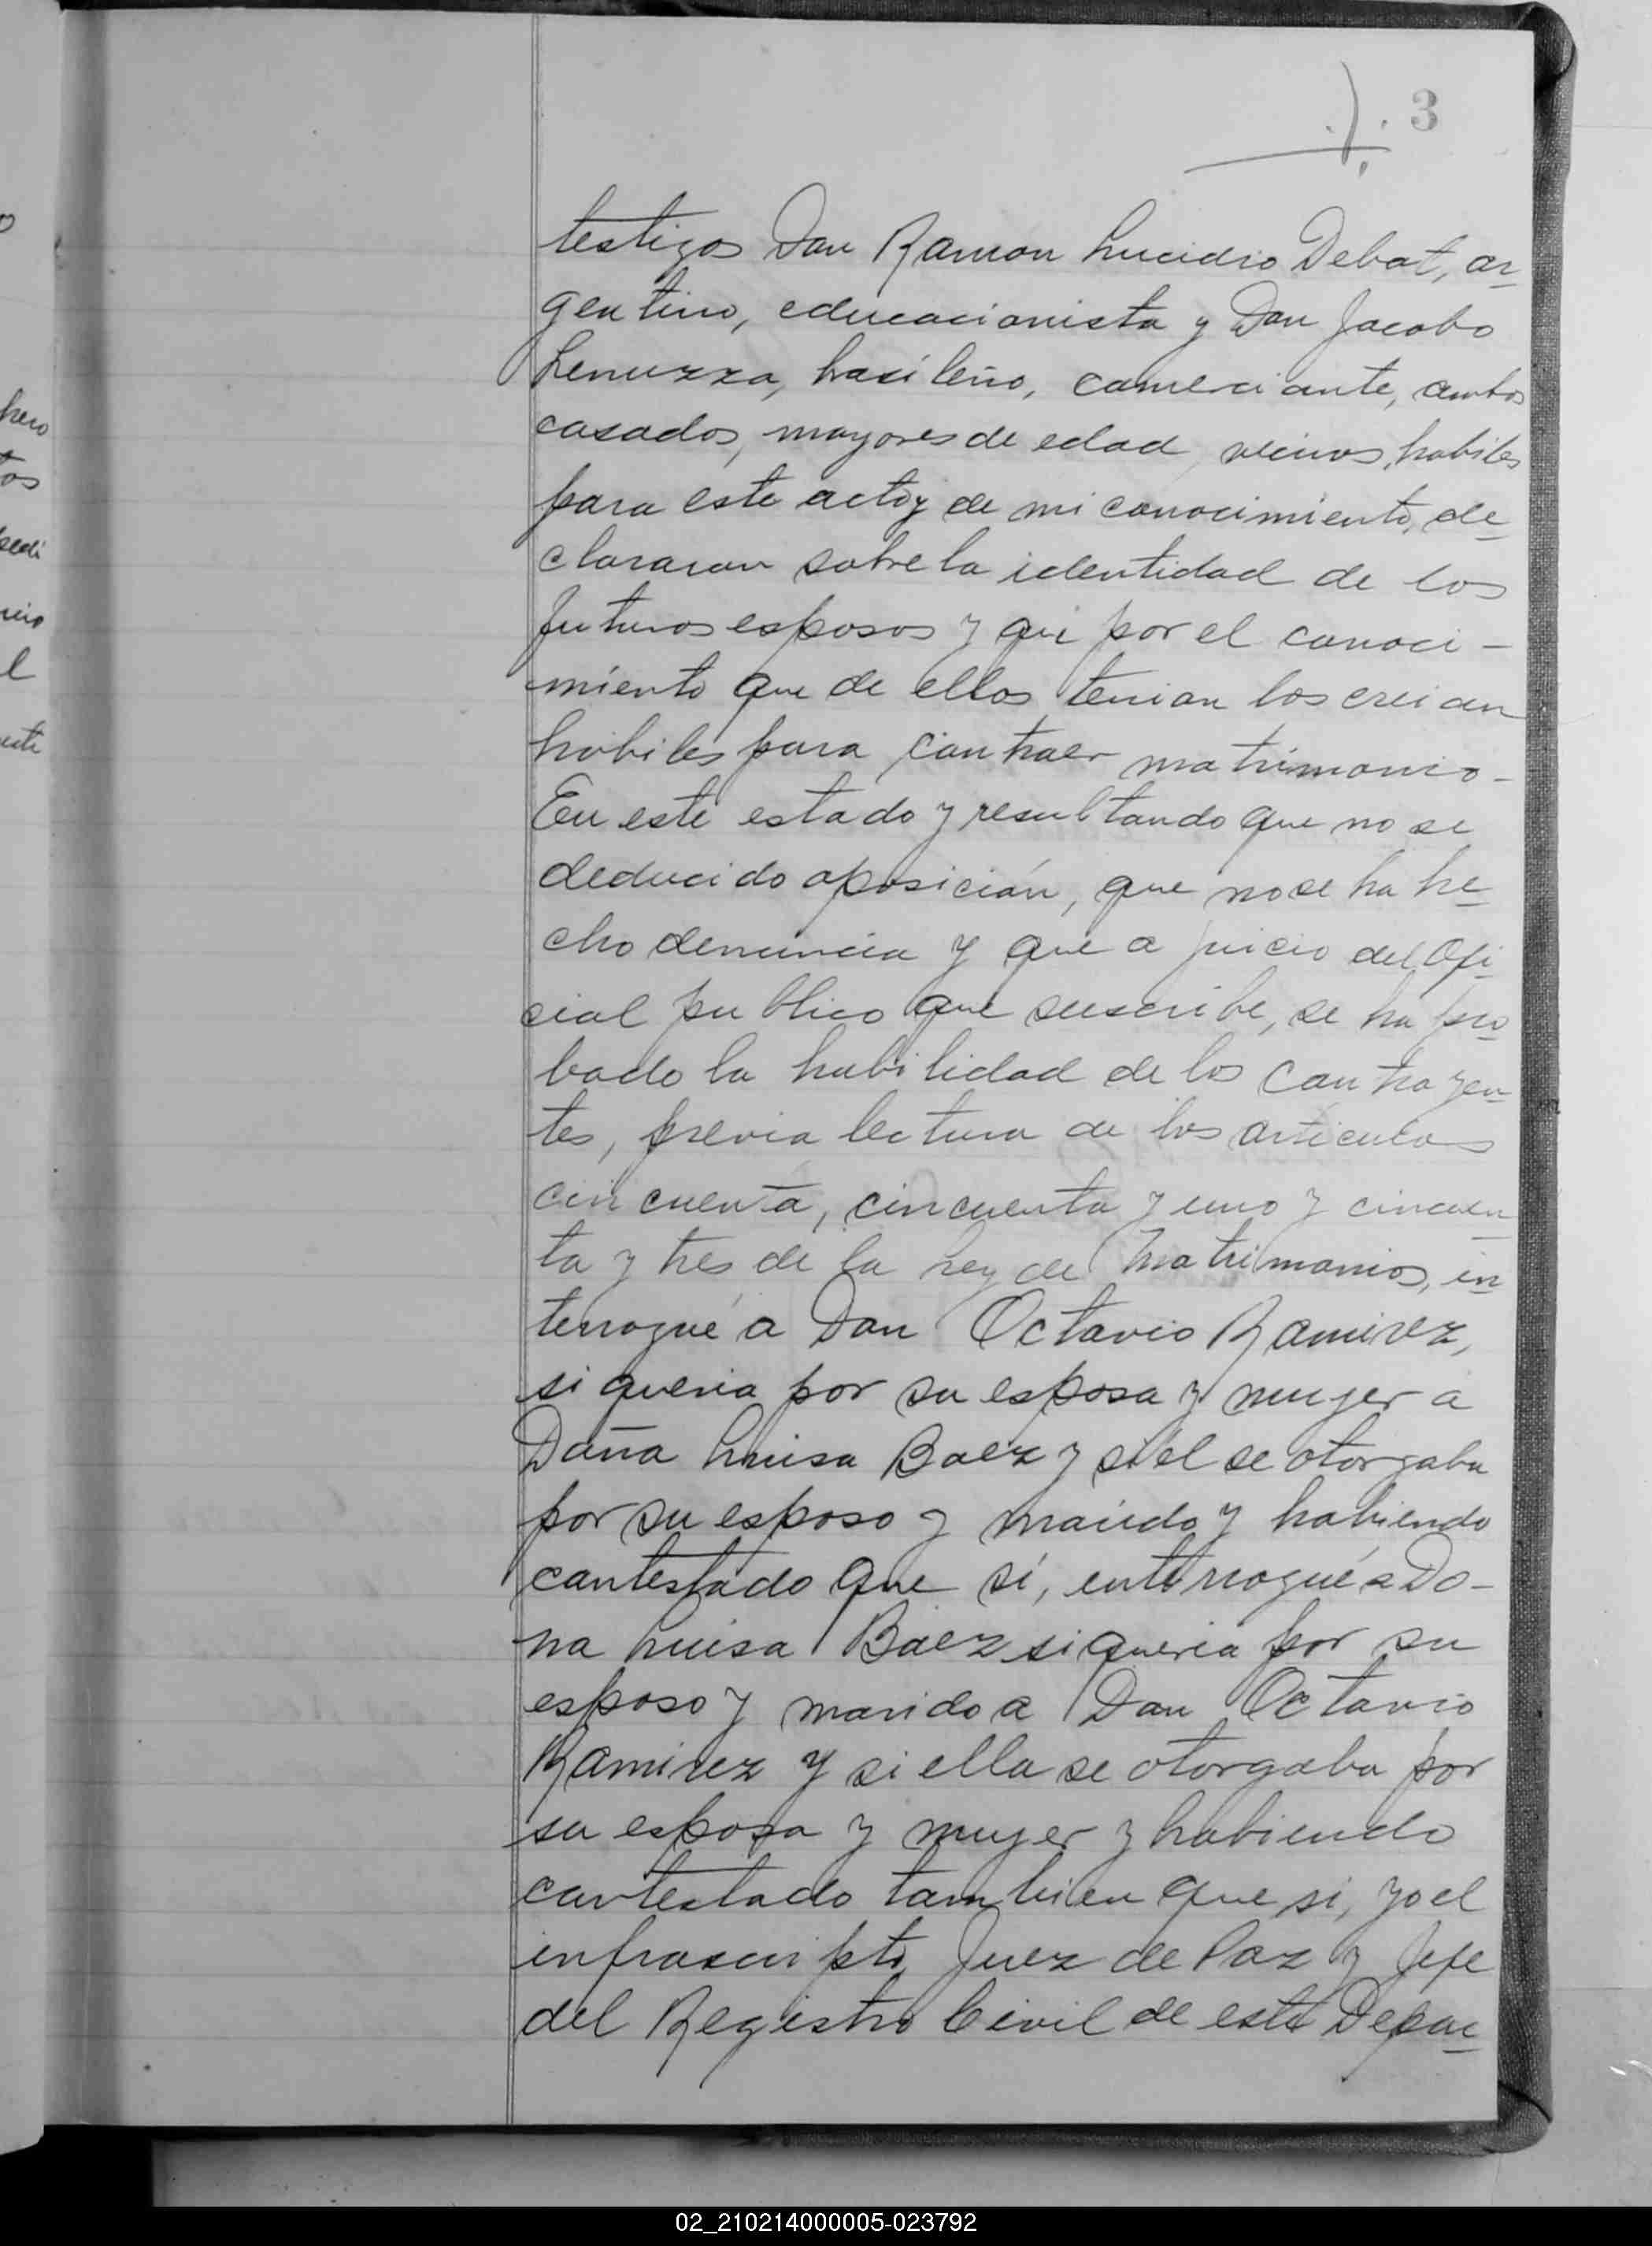 3
testigos Don Ramon Lucidio Debat, ar-
gentino, educacionista y Don Jacobo
Lenuzza, brasileño, comerciante, ambos
casados, mayores de edad, vecinos, habiles
para este acto y de mi conocimiento, de-
clararon sobre la identidad de los
futuros esposos y que por el conoci-
miento que de ellos tenian los creian
habiles para contraer matrimonio-
En este estado y resultando que no se
deducido oposición, que no se ha he-
cho denuncia y que a juicio del Ofi-
cial publico que suscribe, se ha pro-
bado la habilidad de los contrayen-
tes, previa lectura de los articulos
cincuenta, cincuenta y uno y cincuen-
ta y tres de la Ley de Matrimonios, in-
terrogué a Don Octavio Ramirez,
si queria por su esposa y mujer a
Doña Luisa Baez y si él se otorgaba
por su esposo y marido y habiendo
contestado que sí, enterrogué a Do-
na Luisa Baez si queria por su
esposo y marido a Don Octavio
Ramirez y si ella se otorgaba por
su esposa y mujer y habiendo
contestado tambien que si, yo el
infrascripto Juez de Paz y Jefe
del Registro Civil de este Depar-
hero
tos
l
02_210214000005-023792